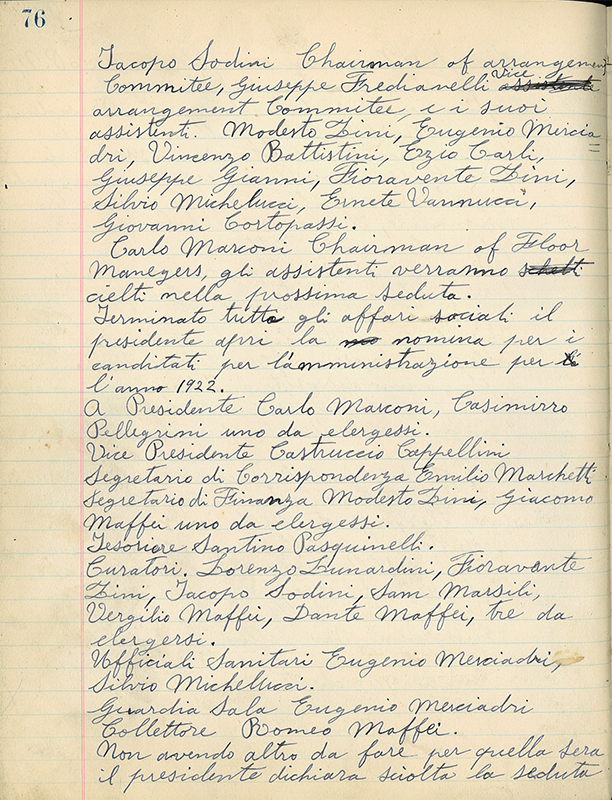 76
Jacopo Sodini Chairman of arrangement
Commitee, Giuseppe Fredianelli Vice assistente
arrangement Commitee, e i suoi
assistenti. Modesto Dini, Eugenio Mercia=
dri, Vincenzo Battistini, Ezio Carli,
Giuseppe Gianni, Fioravente Dini,
Silvio Michelucci, Ernete Vannucci,
Giovanni Cortopassi.
Carlo Marconi Chairman of Floor
Manegers, gli assistenti verranno schelti
cielti nella prossima seduta.
Terminato tutto gli affari sociali il
presidente apri la no nomina per i
canditati per l'amministrazione per
l'anno 1922.
A Presidente Carlo Marconi, Casimirro
Pellegrini uno da elergessi.
Vice Presidente Castruccio Cappellini
Segretario di Corrispondenza Emilio Marchetti
Segretario di Finanza Modesto Dini, Giacomo
Maffei uno da elergessi.
Tesoriere Santino Pasquinelli.
Curatori. Lorenzo Lunardini, Fioravante
Dini, Jacopo Sodini, Sam Marsili,
Vergilio Maffei, Dante Maffei, tre da
elergersi.
Ufficiali Sanitari Eugenio Merciadri,
Silvio Michelucci.
Guardia Sala Eugenio Merciadri
Collettore Romeo Maffei.
Non avendo altro da fare per quella sera
il presidente dichiara sciolta la seduta